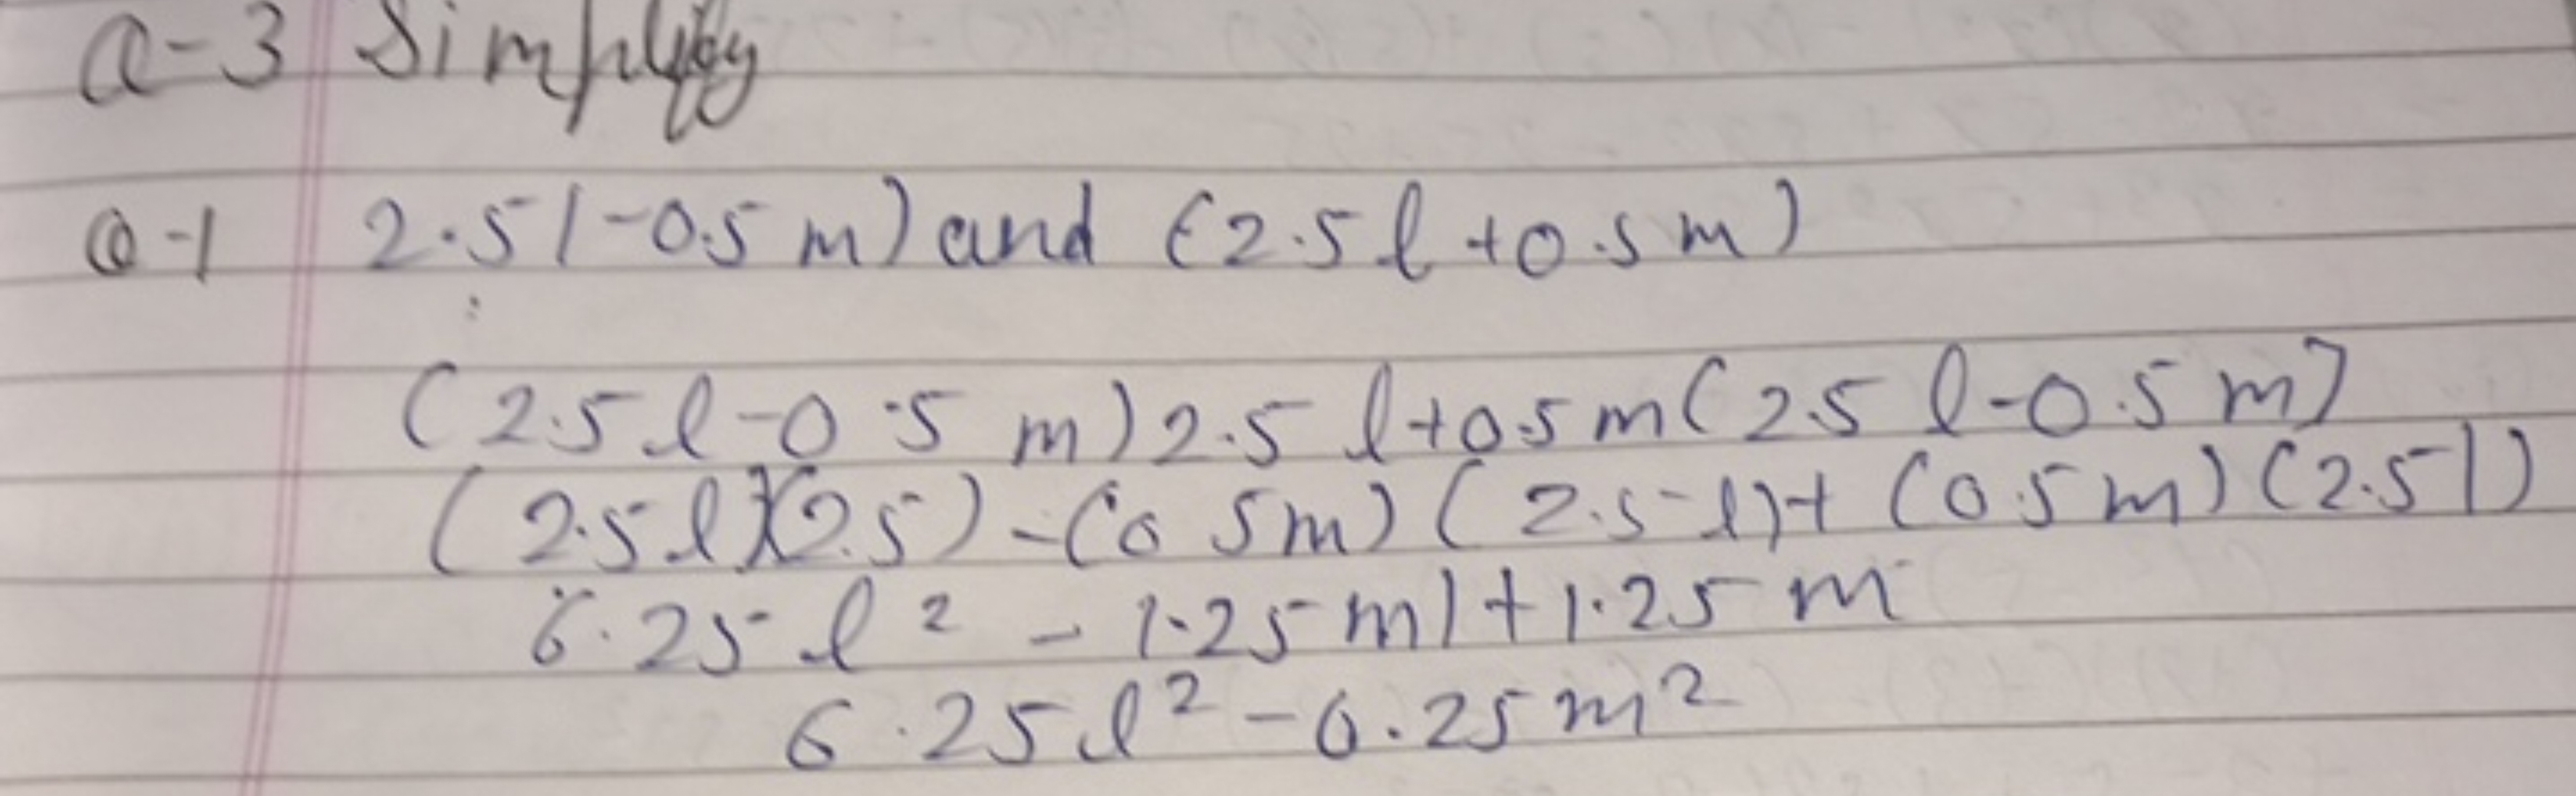 Q-3 Simplify
Q-1 2.5l-0.5 m) and (2.5l+0.5m)
(2.5l-0.5 m)2.5 l+0.5m(2.5 l-0.5m)
(2.5l)(2.5)-(0 5m)(2.5l)+(0.5m)(2.5l)
6.25l² - 1.25ml+1.25m
6.25l²-0.25m²